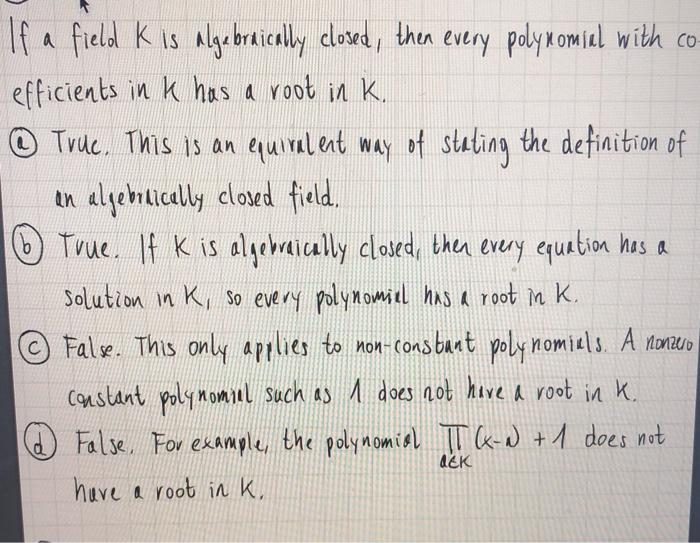 If a field K is algebraically closed, then every polynomial with co-
efficients in K has a root in K.
ⓐ True. This is an equivalent way of stating the definition of
an algebraically closed field.
ⓑ True. If K is algebraically closed, then every equation has a
solution in K, so every polynomial has a root in K.
ⓒ False. This only applies to non-constant polynomials. A nonzero
constant polynomial such as 1 does not have a root in K.
ⓓ False. For example, the polynomial ∏_{a∈K} (x-a) + 1 does not
have a root in K.